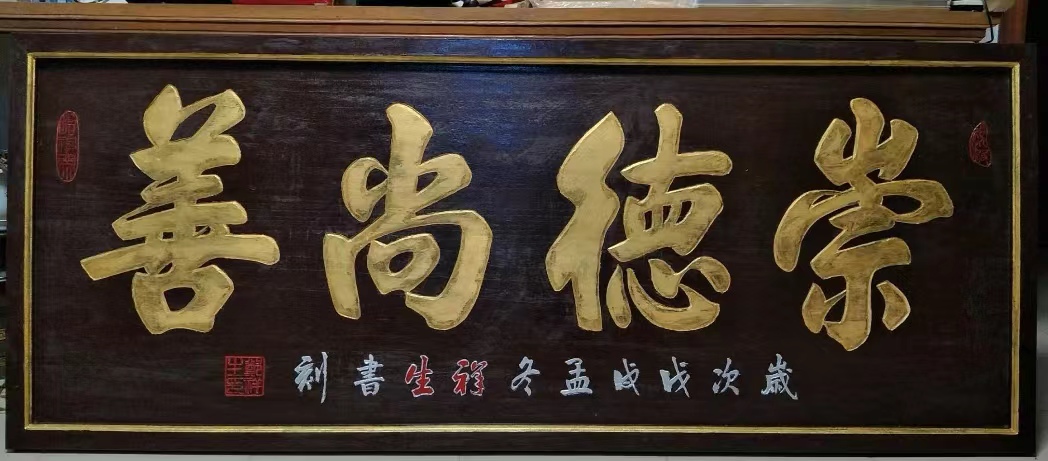 崇德尚善
歲次戊戌孟冬祥生書刻